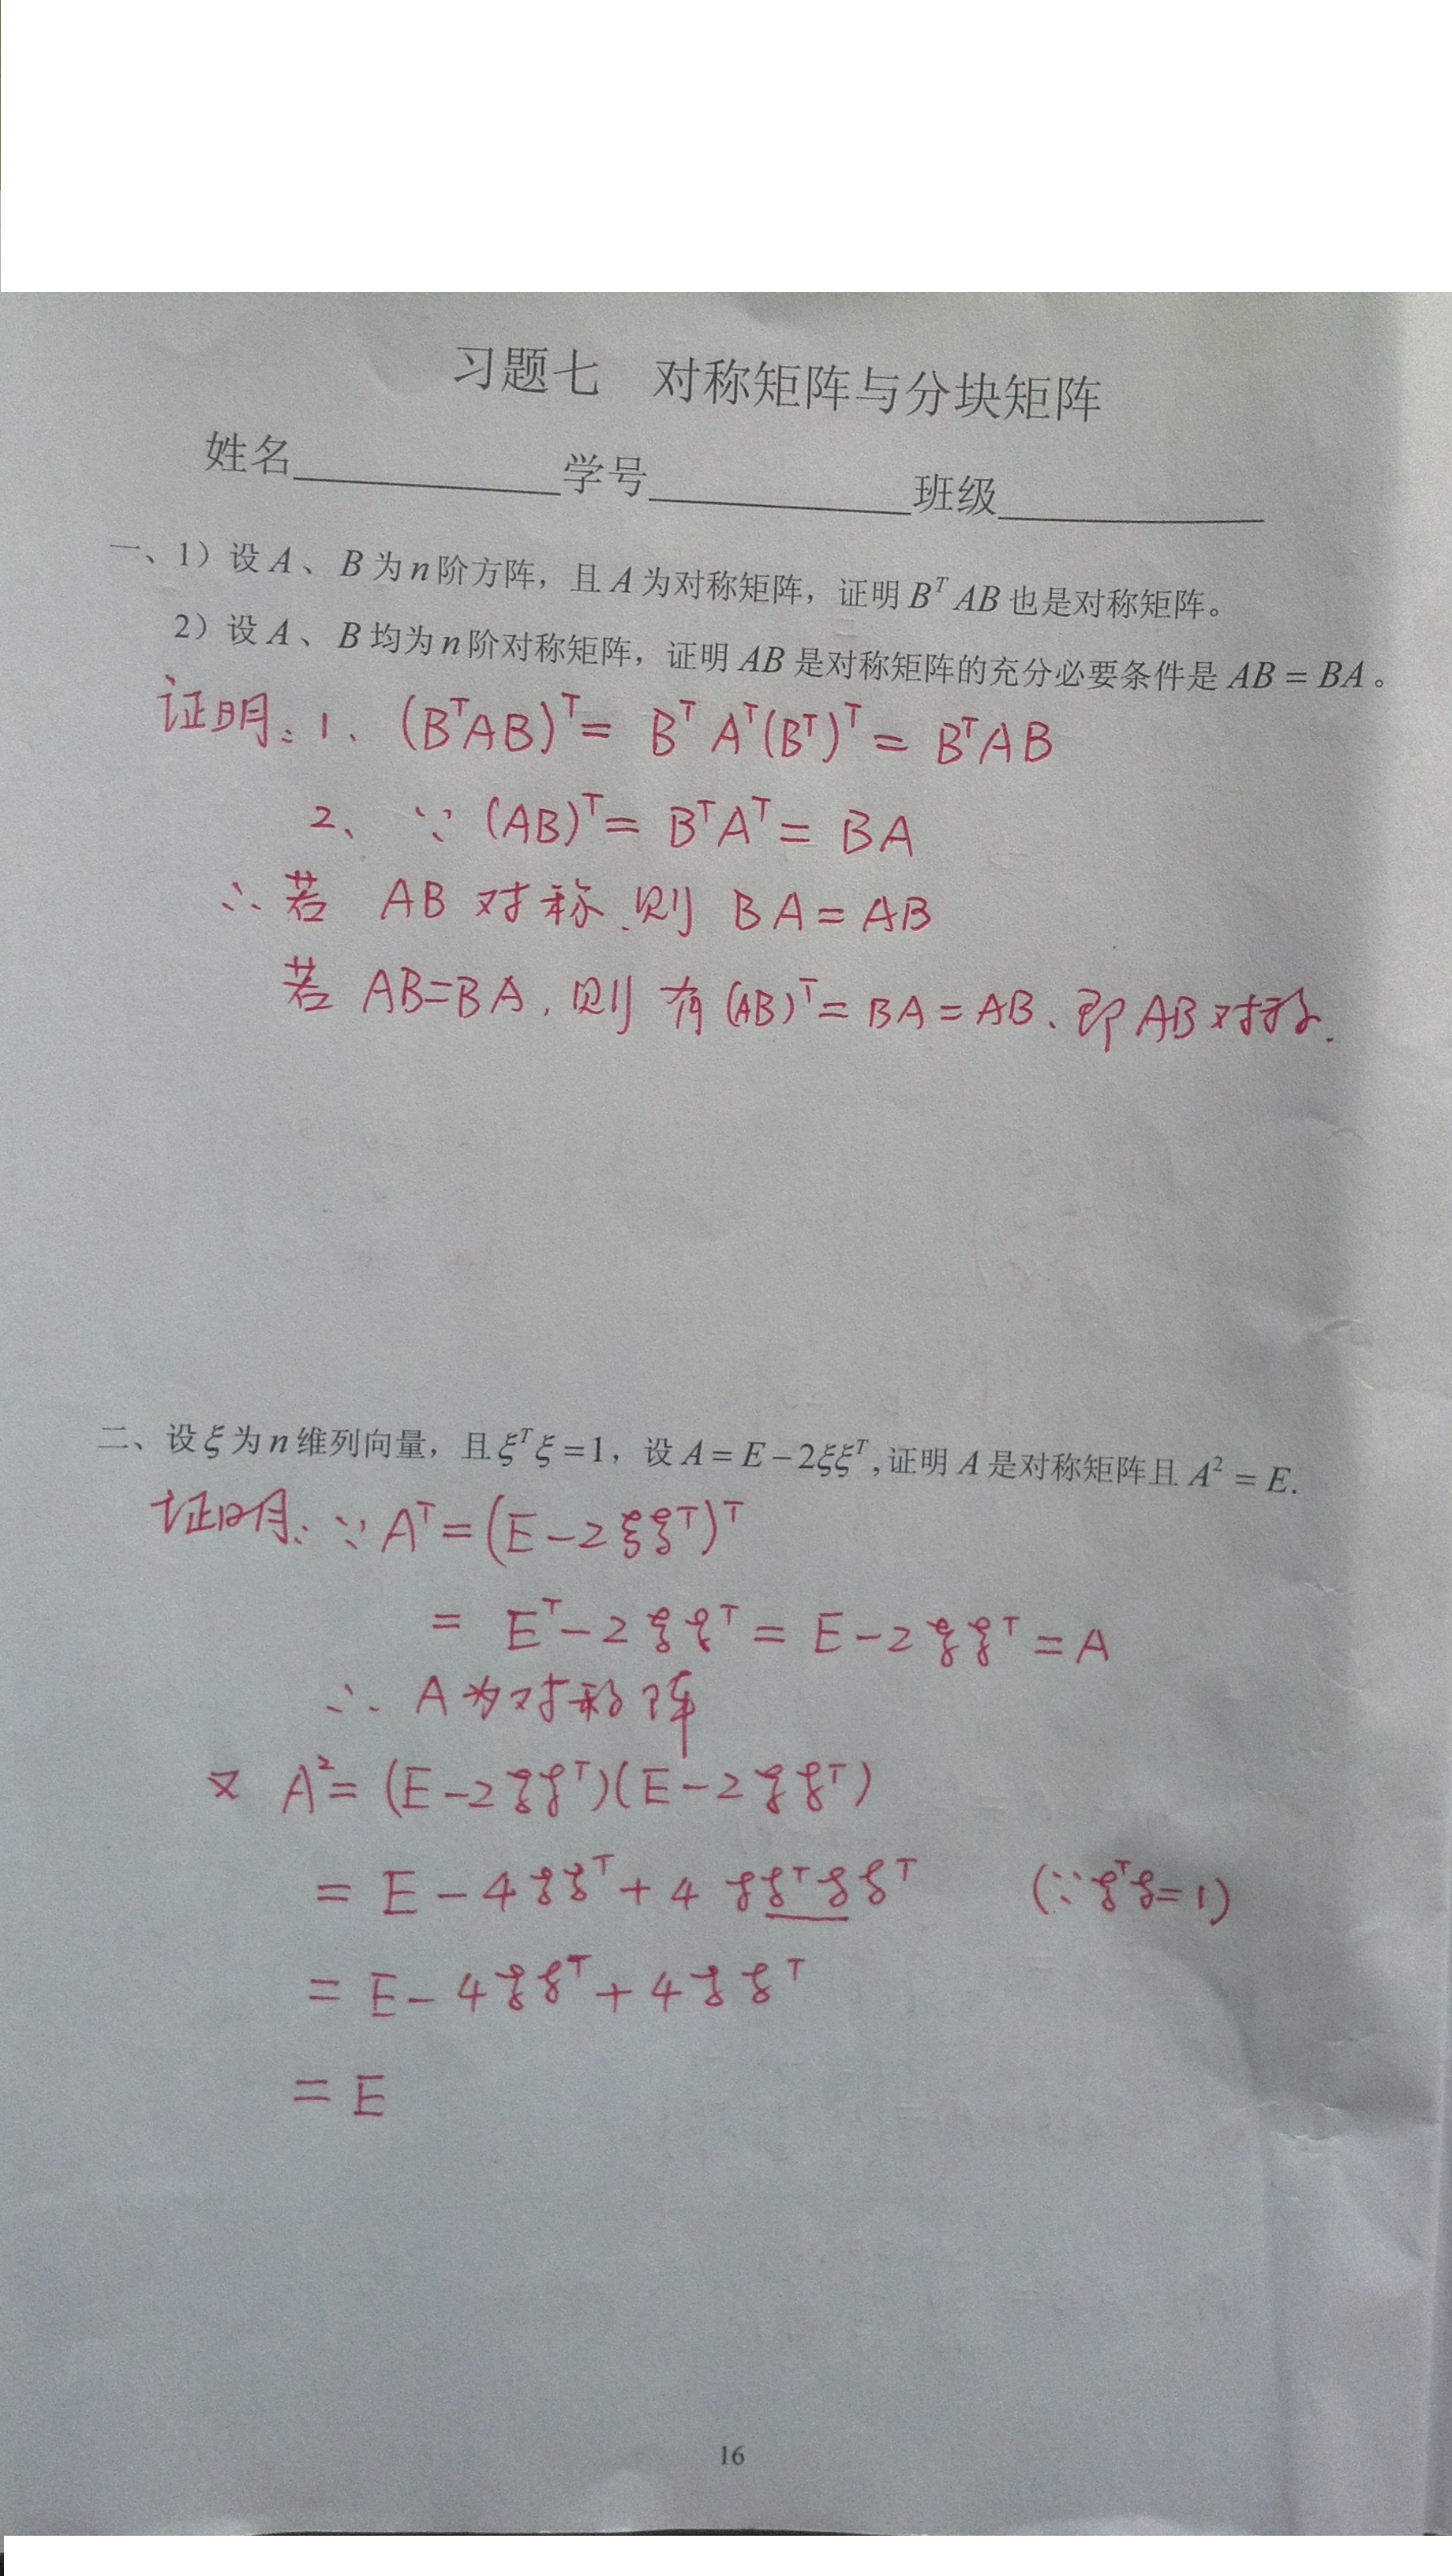 习题七 对称矩阵与分块矩阵
姓名__________学号__________班级__________
一、1）设 A、B 为 n 阶方阵，且 A 为对称矩阵，证明 Bᵀ AB 也是对称矩阵。
2）设 A、B 均为 n 阶对称矩阵，证明 AB 是对称矩阵的充分必要条件是 AB = BA。
证明: 1、(BᵀAB)ᵀ = Bᵀ Aᵀ(Bᵀ)ᵀ = BᵀAB
2、∵ (AB)ᵀ = BᵀAᵀ = BA
∴ 若 AB 对称, 则 BA = AB
若 AB=BA, 则有 (AB)ᵀ = BA = AB、即 AB 对称.
二、设 ξ 为 n 维列向量，且 ξᵀξ = 1，设 A = E − 2ξξᵀ,证明 A 是对称矩阵且 A² = E.
证明: ∵ Aᵀ = (E − 2ξξᵀ)ᵀ
= Eᵀ − 2ξξᵀ = E − 2ξξᵀ = A
∴ A为对称阵
又 A² = (E − 2ξξᵀ)(E − 2ξξᵀ)
= E − 4ξξᵀ + 4ξξᵀξξᵀ (∵ξᵀξ=1)
= E − 4ξξᵀ + 4ξξᵀ
= E
16